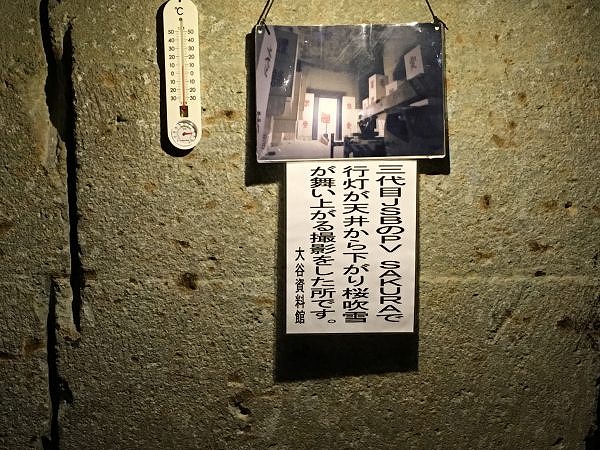 ℃
50 50
40 40
30 30
20 20
10 10
0 0
10 10
20 20
30 30
三代目JSBのPV SAKURAで
行灯が天井から下がり桜吹雪
が舞い上がる撮影をした所です。
大谷資料館